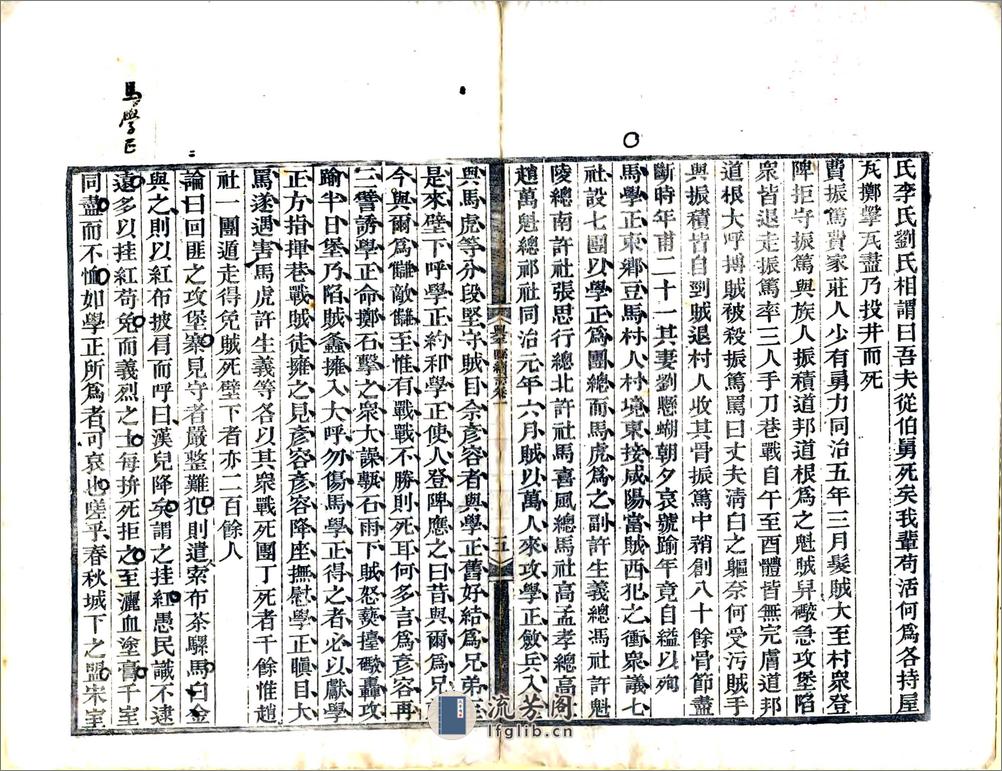 氏李氏劉氏相謂曰吾夫從伯舅死矣我輩苟活何爲各持屋
瓦擲擊瓦盡乃投井而死
費振篤費家莊人少有勇力同治五年三月髮賊大至村衆登
陴拒守振篤與族人振積道邦道根爲之魁賊舁礮急攻堡陷
衆皆退走振篤率三人手刀巷戰自午至酉體皆無完膚道邦
道根大呼搏賊被殺振篤罵曰丈夫清白之軀奈何受汚賊手
與振積皆自剄賊退村人收其骨振篤中矟創八十餘骨節盡
斷時年甫二十一其妻劉懸蝴朝夕哀號踰年竟自縊以殉
馬學正東鄉豆馬村人村境東接咸陽當賊西犯之衝衆議七
社設七團以學正爲團總而馬虎爲之副許生義總馮社許魁
陵總南許社張思行總北許社馬喜風總馬社高孟孝總高
趙萬魁總祁社同治元年六月賊以萬人來攻學正斂兵入
興平縣續志卷一
五
與馬虎等分段堅守賊目佘彥容者與學正舊好結爲兄弟至
是來壁下呼學正約和學正使人登陴應之曰昔與爾爲兄
今與爾爲讎敵讎至惟有戰戰不勝則死耳何多言爲彥容再
三譬誘學正命擲石擊之衆大譟擊石雨下賊怒藂擡礮轟攻
踰半日堡乃陷賊螽擁入大呼勿傷馬學正得之者必以獻學
正方指揮巷戰賊徒擁之見彥容彥容降座撫慰學正瞋目大
罵遂遇害馬虎許生義等各以其衆戰死團丁死者千餘惟趙
社一團遁走得免賊死壁下者亦二百餘人
論曰回匪之攻堡寨見守者嚴整難犯則遣索布茶騾馬白金
與之則以紅布披肩而呼曰漢兒降矣謂之挂紅愚民識不逮
遠多以挂紅苟免而義烈之士每拚死拒之至灑血塗膏千室
同盡而不恤如學正所爲者可哀也嗟乎春秋城下之盟宋室
馬學正
流芳閣
lfglib.cn